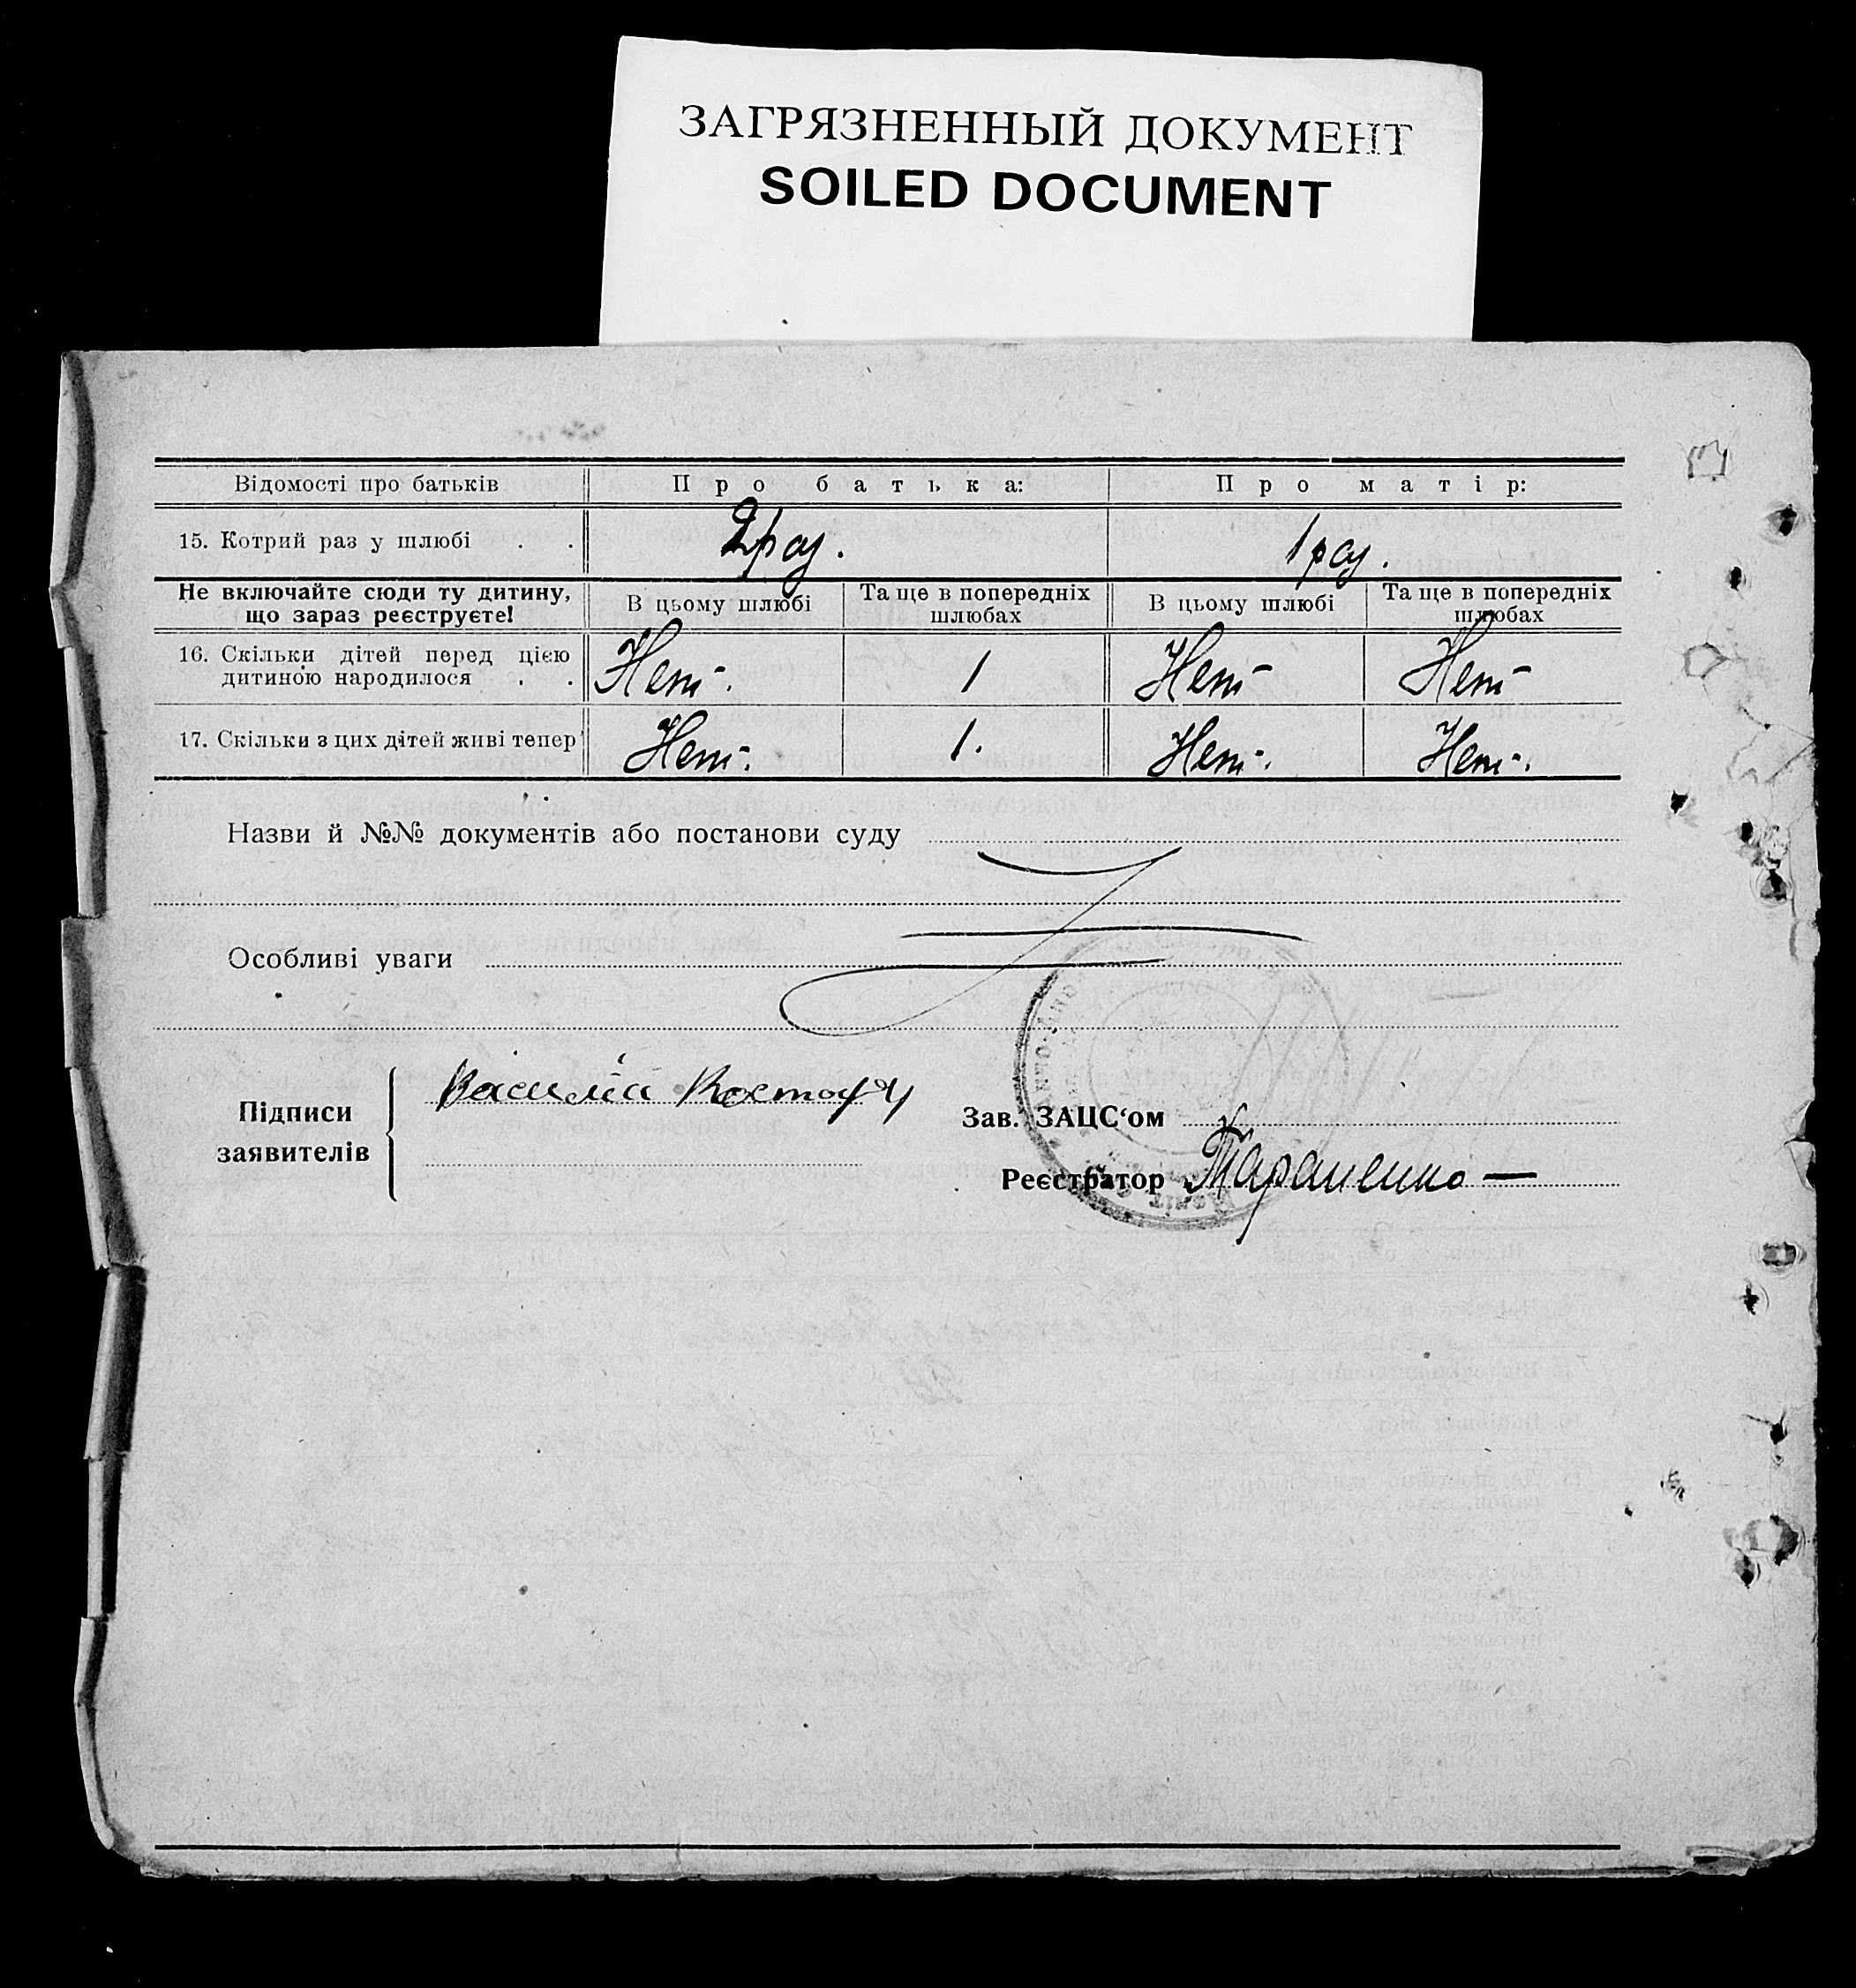 ЗАГРЯЗНЕННЫЙ ДОКУМЕНТ
SOILED DOCUMENT
Відомості про батьків Про батька: Про матір:
15. Котрий раз у шлюбі . . 2 раз. 1 раз.
Не включайте сюди ту дитину, що зараз реєструєте! В цьому шлюбі Та ще в попередніх шлюбах В цьому шлюбі Та ще в попередніх шлюбах
16. Скільки дітей перед цією
дитиною народилося . . Нет-. 1 Нет- Нет-
17. Скільки з цих дітей живі тепер Нет-. 1. Нет-. Нет-.
Назви й №№ документів або постанови суду
Особливі уваги
Підписи
заявителів
Василий
Зав. ЗАЦС‘ом
Реєстратор Тараненко —